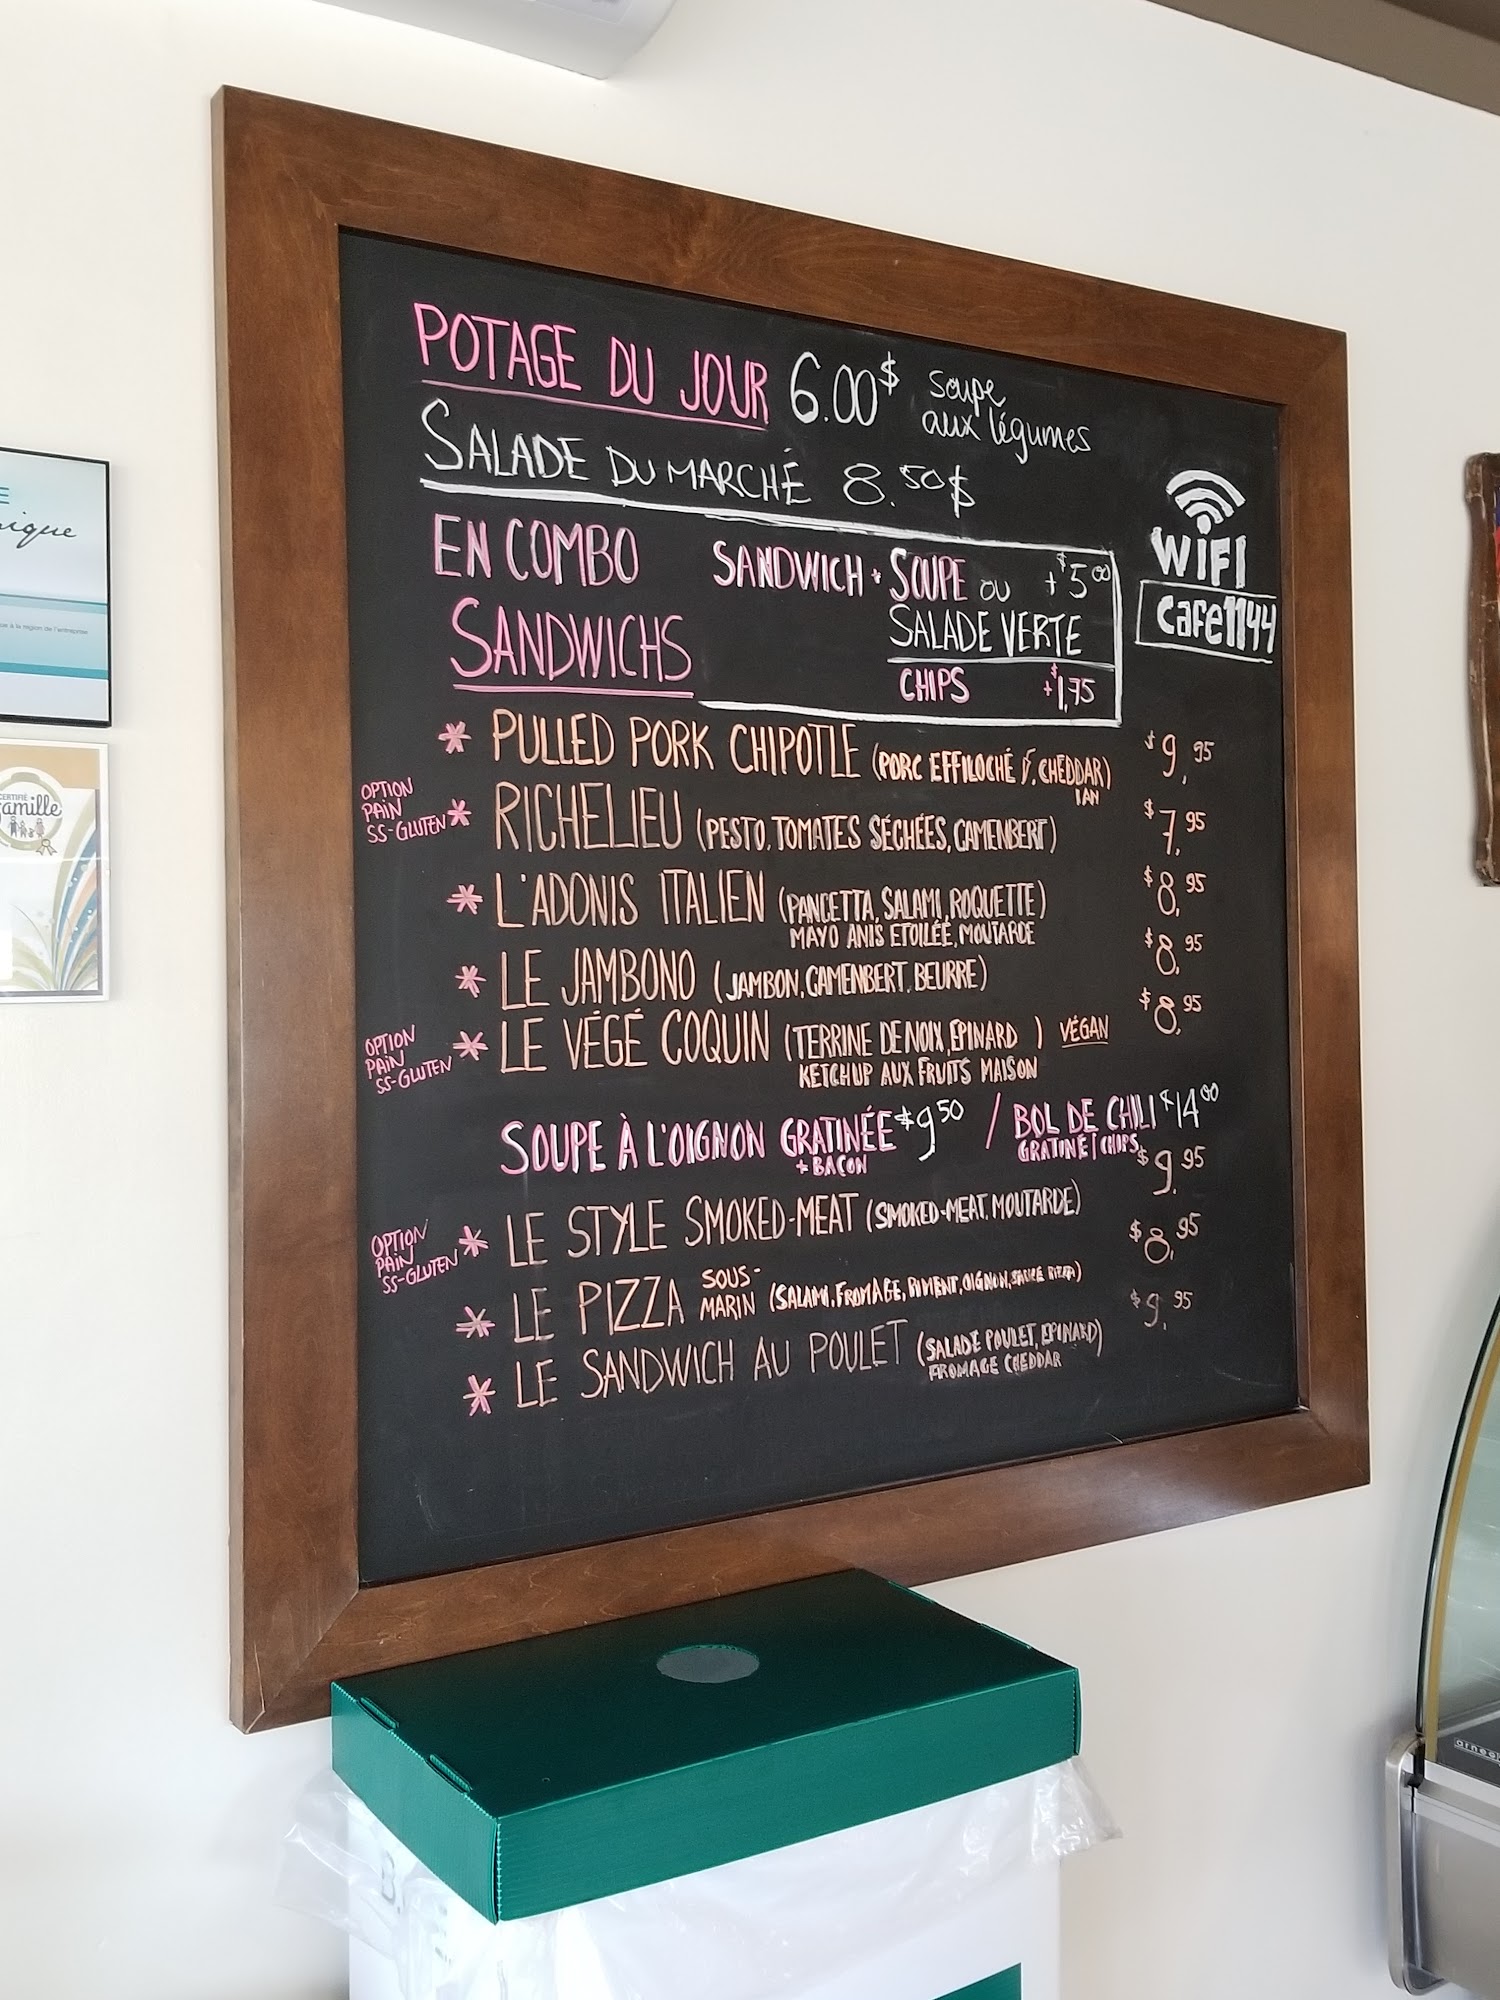 POTAGE DU JOUR 6.00$ soupe
aux légumes
SALADE DU MARCHÉ 8.50$
EN COMBO SANDWICH + SOUPE OU +$5.00
SALADE VERTE
CHIPS +$1,75
WiFi
cafe1144
SANDWICHS
* PULLED PORK CHIPOTLE (PORC EFFILOCHÉ, CHEDDAR) $9,95
OPTION
PAIN
SS-GLUTEN
* RICHELIEU (PESTO, TOMATES SÉCHÉES, CAMENBERT) $7,95
* L'ADONIS ITALIEN (PANCETTA, SALAMI, ROQUETTE) $8,95
MAYO ANIS ETOILÉE, MOUTARDE
* LE JAMBONO (JAMBON, CAMENBERT, BEURRE) $8,95
OPTION
PAIN
SS-GLUTEN
* LE VÉGÉ COQUIN (TERRINE DE NOIX, EPINARD ) VÉGAN $8,95
KETCHUP AUX FRUITS MAISON
SOUPE À L'OIGNON GRATINÉE $9.50 / BOL DE CHILI $14.00
+ BACON GRATINÉ | CHIPS
OPTION
PAIN
SS-GLUTEN
* LE STYLE SMOKED-MEAT (SMOKED-MEAT, MOUTARDE) $9,95
* LE PIZZA SOUS-
MARIN (SALAMI, FROMAGE, PIMENT, OIGNON, SAUCE PIZZA) $8,95
* LE SANDWICH AU POULET (SALADE POULET, EPINARD) $9,95
FROMAGE CHEDDAR
E
nique
que à la région de l'entreprise
CERTIFIÉ
famille
arneg